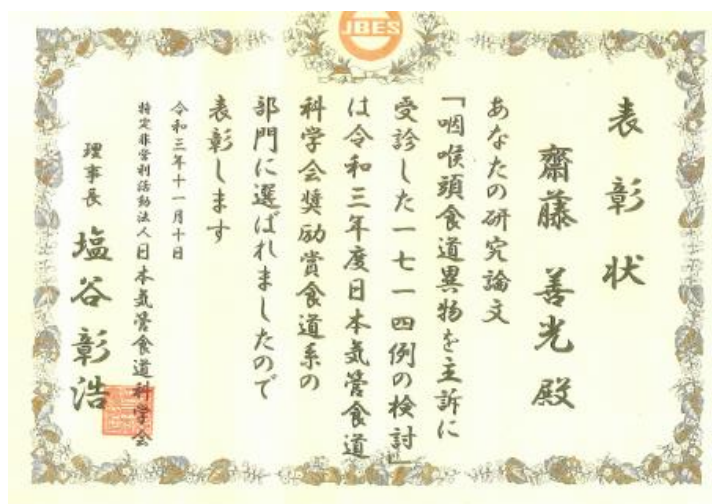 JBES
表彰状
齋藤善光殿
あなたの研究論文
「咽喉頭食道異物を主訴に
受診した一七一四例の検討」
は令和三年度日本気管食道
科学会奨励賞食道系の
部門に選ばれましたので
表彰します
令和三年十一月十日
特定非営利活動法人日本気管食道科学会
理事長 塩谷彰浩